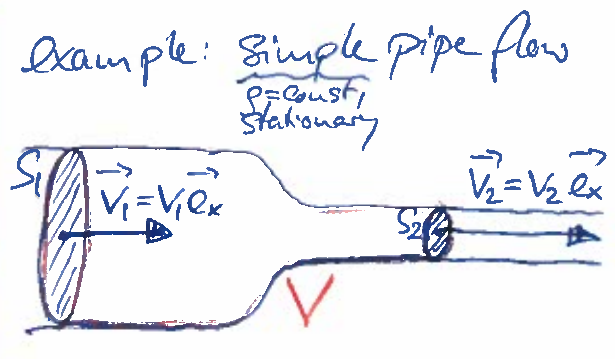 example: simple pipe flow
ρ=const,
stationary
S₁
v⃗₁=v₁e⃗ₓ
v⃗₂=v₂e⃗ₓ
S₂
V